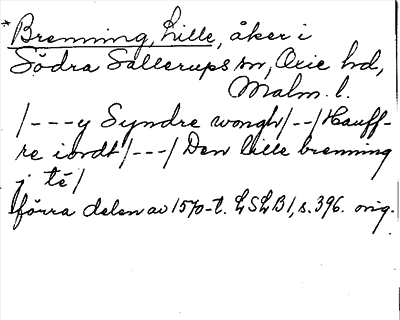 *Brenning, Lille, åker i
Södra Sallerups sn, Oxie hd,
Malm. l.
/---y Syndre wongh/--/Hauff-
re iordt/---/Den lille brenning
j té/
förra delen av 1570-t. LSLB1, s. 396. orig.